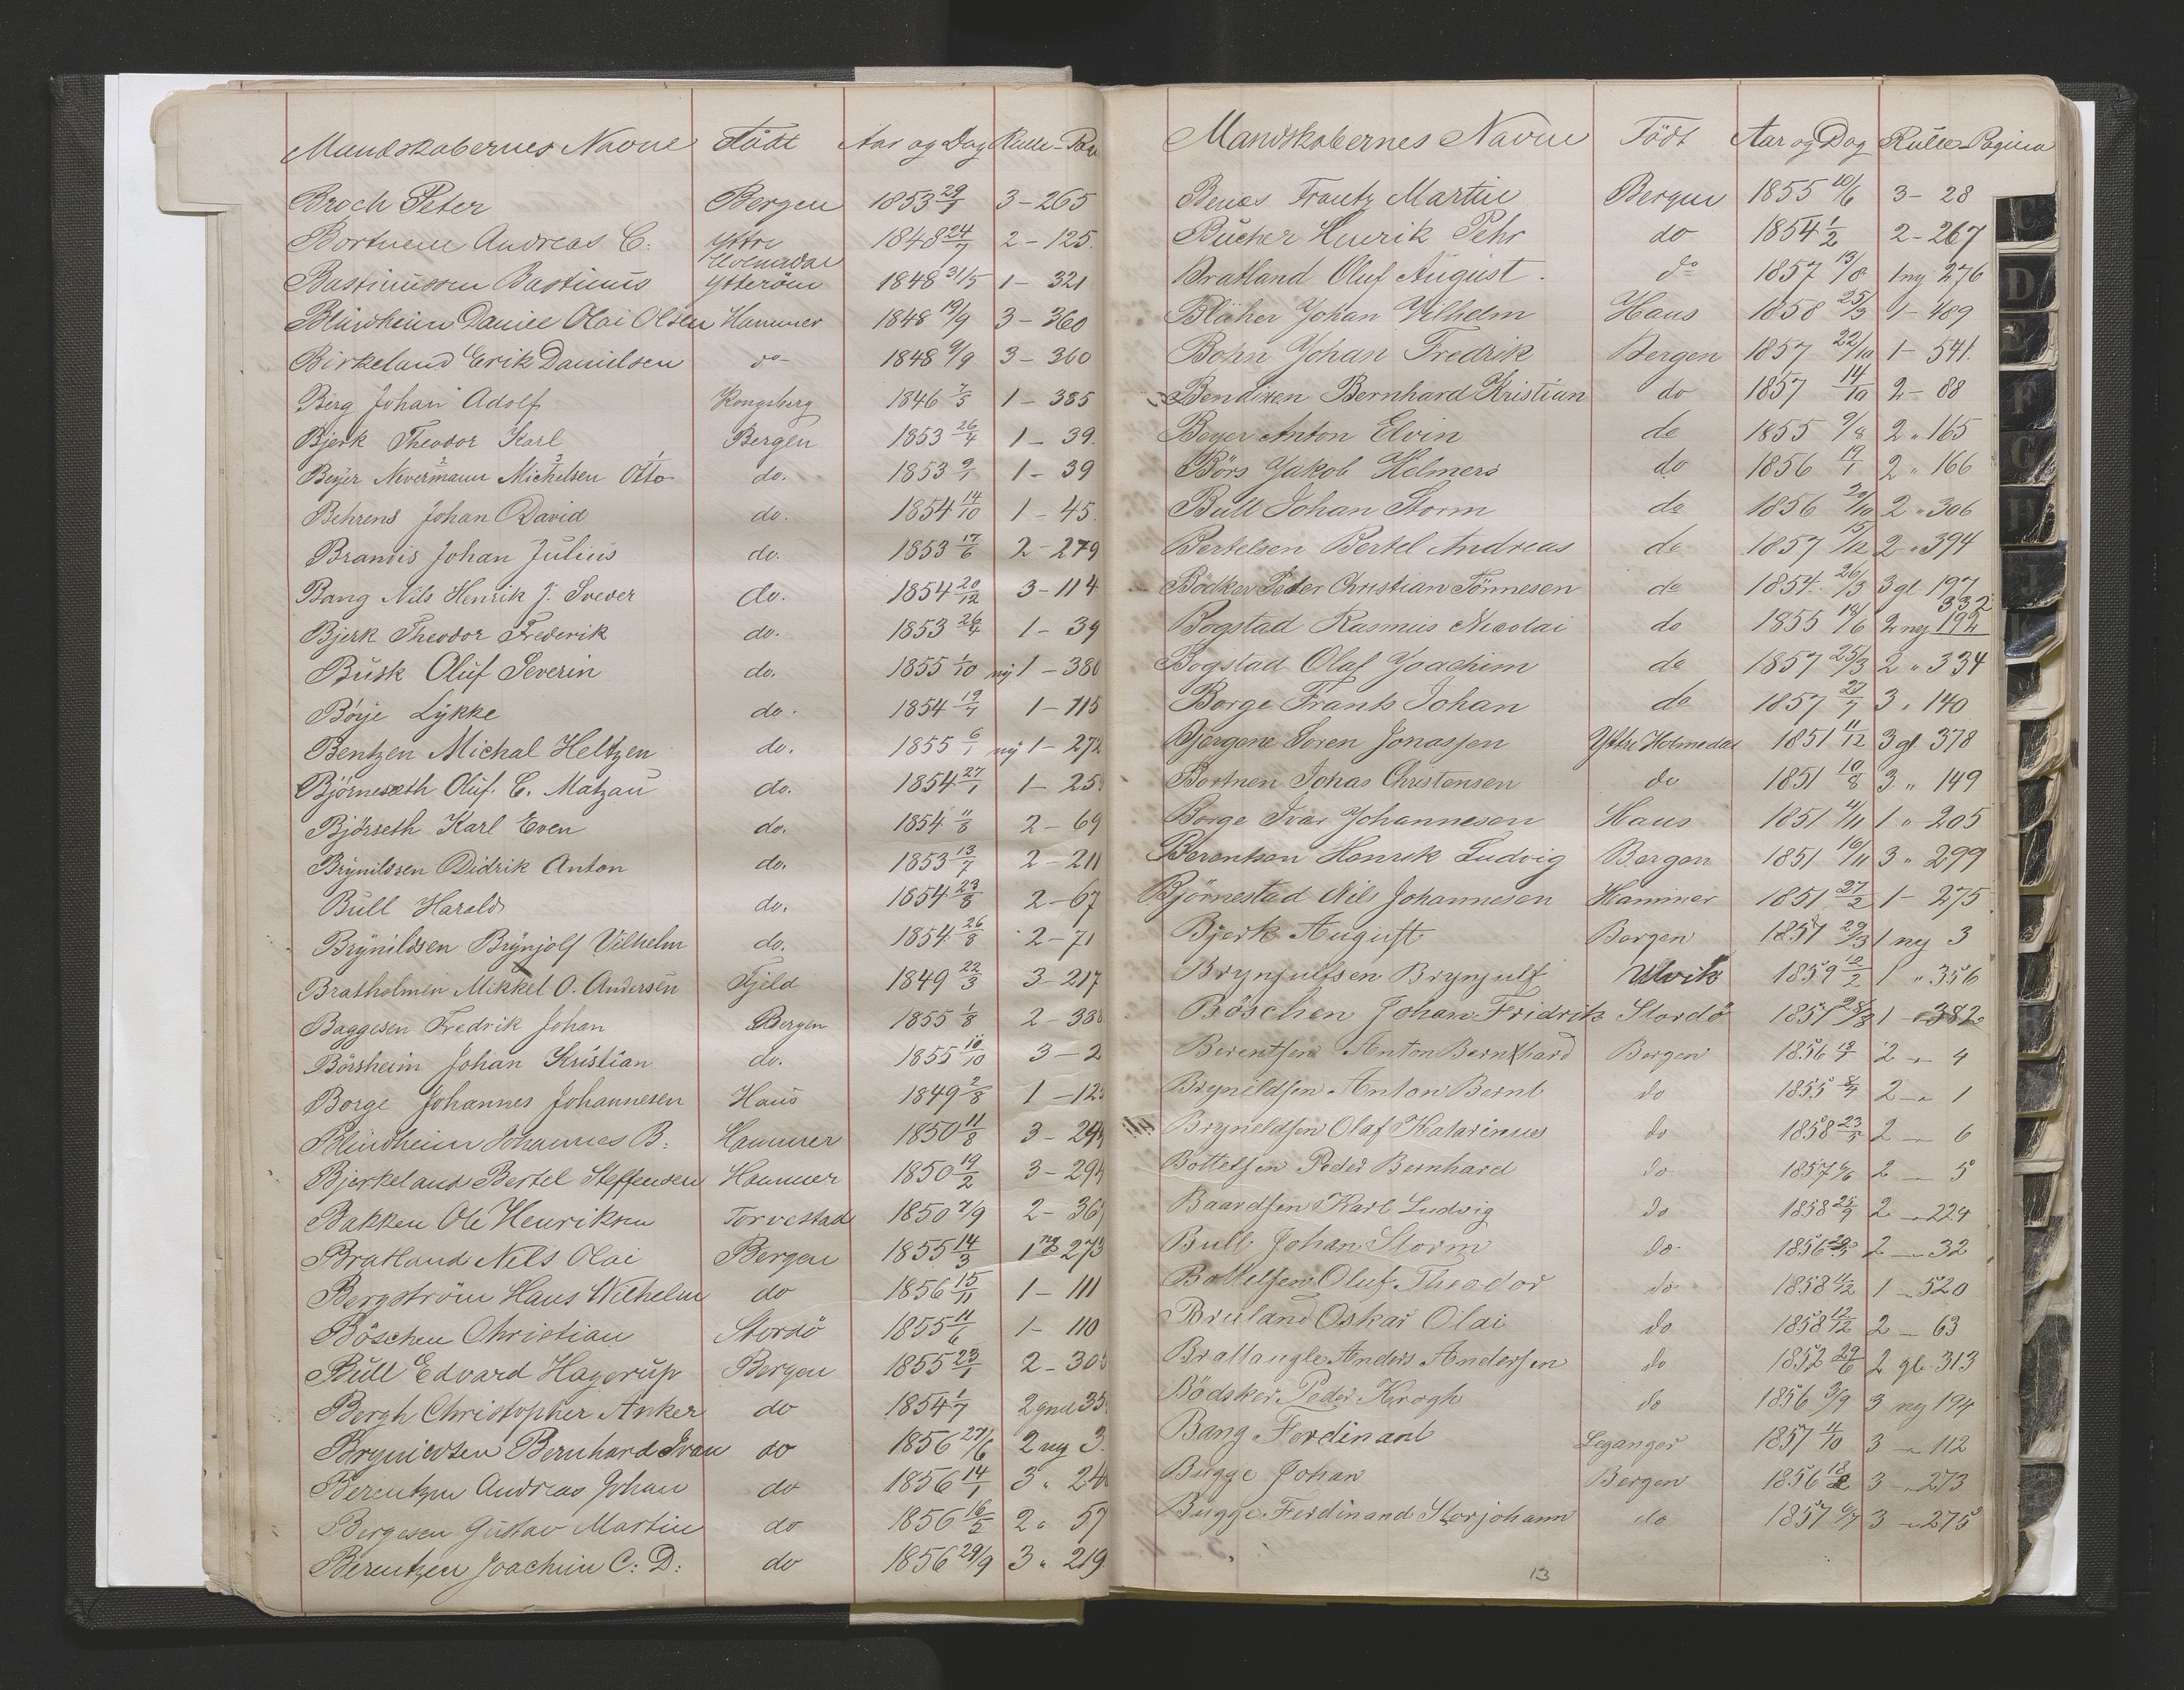 Mandskabernes Navne Födt Aar og Dag Rulle-Pa
Broch Peter Bergen 1853 29/7 3-265
Bortnem Andreas C: Yttre 1848 24/7 2-125
Bastinussen Bastinus Ytteröen 1848 31/5 1-321
Blindheim Daniel Olai Olsen Hammer 1848 19/9 3-360
Birkeland Erik Danielsen do 1848 9/9 3-360
Berg Johan Adolf Kongsberg 1846 1-385
Bjerk Theodor Karl Bergen 1853 26/4 1-39
Beyer Nevermann 2 Michelsen 3 Otto 1 do. 1853 1-39
Behrens Johan David do. 1854 14/10 1-45
Brandis Johan Julius do. 1853 17/6 2-279
Bang Nils Henrik J. Svever do. 1854 20/12 3-114
Bjerk Theodor Frederik do. 1853 26/4 1-39
Busk Oluf Severin do. 1855 1/10 ny 1-380
Böye Lykke do. 1854 1-115
Bentzen Michal Heltzen do. 1855 6/1 ny 1-272
Björneseth Oluf. C. Matzau do. 1854 27/1 1-25
Björseth Karl Even do. 1854 11/8 2-69
Brynildsen Didrik Anton do. 1853 13/7 2-211
Bull Harald do. 1854 23/8 2-67
Brynildsen Brynjolf Vilhelm do. 1854 26/8 2-71
Bratholmen Mikkel O. Andersen Fjeld 1849 22/3 3-217
Baggesen Fredrik Johan Bergen 1855 1/8 2-33
Börsheim Johan Kristian do. 1855 10/10 3-2
Borge Johannes Johannesen Haus 1849 2/8 1-12
Blindheim Johannes B: Hammer 1850 11/8 3-29
Bjerkeland Bertel Steffensen Hammer 1850 19/2 3-294
Bakken Ole Henriksen Torvestad 1850 7/9 2-36
Bratland Nils Olai Bergen 1855 14/3 1 ny 273
Bergström Hans Wilhelm do 1856 15/11 1-111
Böschen Christian Stordö 1855 11/6 1-110
Bull Edvard Hagerup Bergen 1855 23/1 2-30
Bergh Christopher Anker do 1854 1/7 2 gml 35
Brynildsen Bernhard Ivan do 1856 27/6 2 ny 3
Berentzen Andreas Johan do 1856 14/1 3 " 24
Bergesen Gustav Martin do 1856 16/2 2 " 57
Berentzen Joachim C: D: do 1856 29/9 3 " 219
Mandskabernes Navne Födt Aar og Dag Rulle-Pagina
Frantz Martin Bergen 1855 10/6 3-28
Bücher Henrik Pehr do 1854 1/2 2-267
Bratland Oluf August. do 1857 13/8 1 ny 276
Blåher Johan Vilhelm Haus 1858 25/3 1-489
Bohn Johan Fredrik Bergen 1857 22/10 1-541.
Bendixen Bernhard Kristian do 1857 14/10 2-88
Beyer Anton Elvin do 1855 9/8 2 " 165
Börs Jakob Helmers do 1856 19/1 2 " 166
Bull Johan Storm do 1856 20/10 2 " 306
Bertelsen Bertel Andreas do 1857 15/12 2 " 394
Bödker Peder Christian Tönnesen do 1854 26/3 3 gl. 197
332
Bogstad Rasmus Nicolai do 1855 18/6 2 ny 192
Bogstad Olaf Joachim do 1857 25/3 2 " 334
Borge Frants Johan do 1857 27/7 3 " 140
Bjergene Soren Jonassen Yttre Holmedal 1851 11/12 3 gl. 378
Bortnen Johas Christensen do 1851 10/8 3 " 149
Borge Ivar Johannesen Haus 1851 4/11 1 " 205
Berentsen Henrik Ludvig Bergen 1851 16/11 3 " 299
Björnestad Nils Johannesen Hammer 1851 27/2 1-275
Bjerk August Bergen 1857 29/3 1 ny 3
Brynjulfsen Brynjulf Ulvik 1859 10/2 1 " 356
Böschen Johan Fridrik Stordö 1857 28/3 1 - 382
Berentsen Anton Bernhard Bergen 1856 13/7 2 " 4
Bryneldsen Anton Bernt do 1855 8/4 2 " 1
Bryneldsen Olaf Katarinus do 1858 23/5 2 " 6
Bottelsen Peder Bernhard do 1857 6/6 2 - 5
Baardsen Karl Ludvig do 1858 25/9 2 " 224
Bull Johan Storm do 1856 2 - 32
Bottelsen Oluf Theodor do 1858 4/12 1 " 520
Bruland Oskar Olai do 1858 12/12 2 - 63
Brattaugle Anders Andersen do 1852 29/6 2 gl. 313
Bödsker Peder Krogh do 1856 3/9 3 ny 194
Bang Ferdinand Leganger 1857 4/10 3 " 112
Bugge Johan Bergen 1856 3 " 273
Bugge Ferdinand Storjohann do 1857 6/7 3 " 275
13